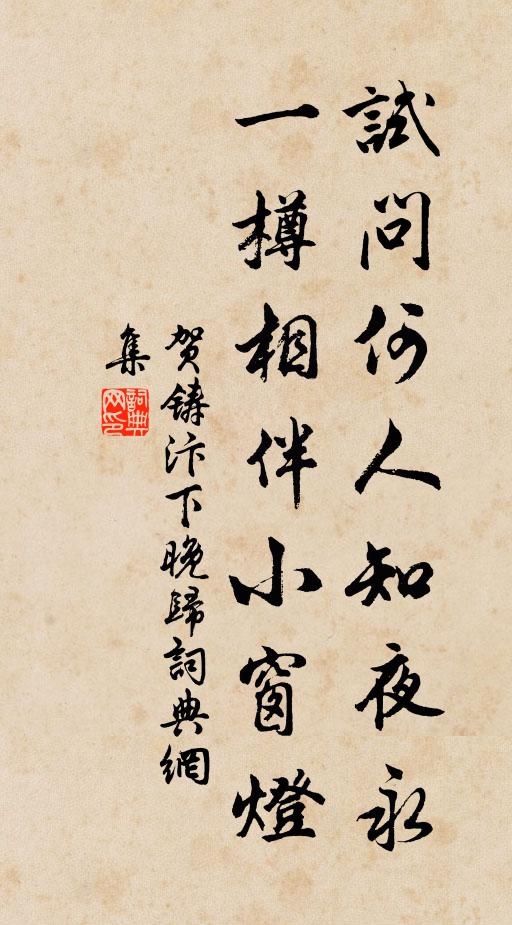 試問何人知夜永
一樽相伴小窗燈
賀鑄汴下晚歸詞典網
集
詞典
网印